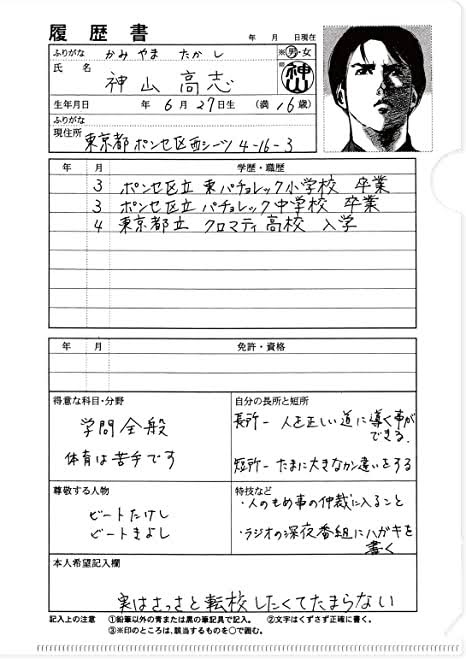 履歴書
年 月 日現在
ふりがな かみやま たかし
※男・女
氏名 神山 高志
※ 神山
生年月日 年 6月27日生 (満16歳)
ふりがな
現住所 東京都ポンセ区西シーツ4-16-3
年 月 学歴・職歴
3 ポンセ区立 東パチョレック小学校 卒業
3 ポンセ区立 パチョレック中学校 卒業
4 東京都立 クロマティ高校 入学
年 月 免許・資格
得意な科目・分野
学問全般
体育は苦手です
自分の長所と短所
長所ー 人を正しい道に導く事が
できる.
短所ー たまに大きなカン違いをする
尊敬する人物
ビートたけし
ビートきよし
特技など
・人のもめ事の仲裁に入ること
・ラジオの深夜番組にハガキを
書く
本人希望記入欄
実はさっさと転校したくてたまらない
記入上の注意 ①鉛筆以外の青または黒の筆記具で記入。 ②文字はくずさず正確に書く。
③※印のところは、該当するものを○で囲む。